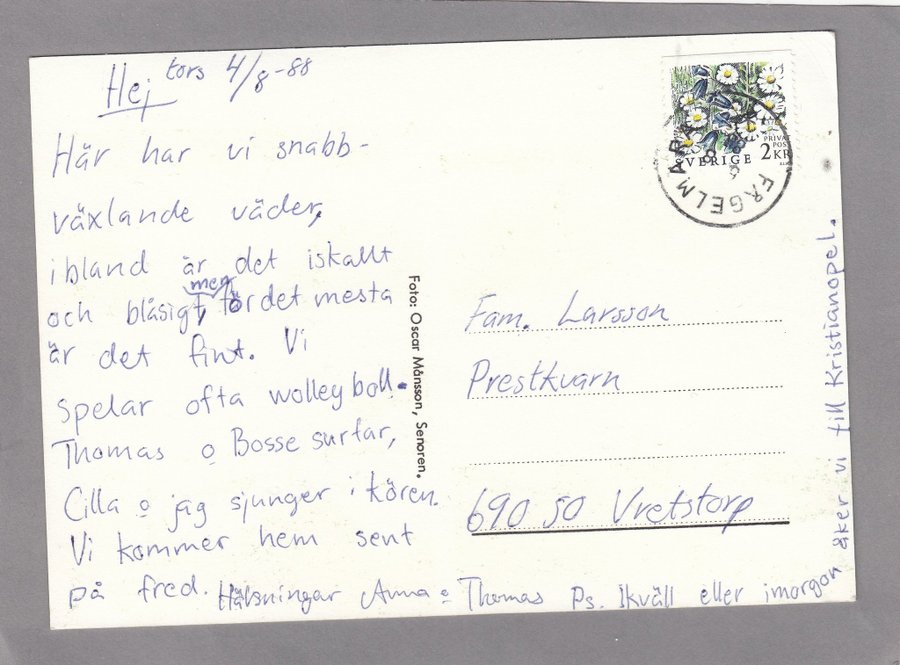 Hej tors 4/8-88
Här har vi snabb-
växlande väder,
ibland är det iskallt
och blåsigt, men för det mesta
är det fint. Vi
spelar ofta wolleyboll.
Thomas o Bosse surfar,
Cilla o jag sjunger i kören.
Vi kommer hem sent
på fred. Hälsningar Anna o Thomas Ps. Ikväll eller imorgon
åker vi till Kristianopel.
Foto: Oscar Månsson, Senoren.
SVERIGE 2KR
PRIVAT
POST
FÅGELMARA
Fam. Larsson
Prestkvarn
690 50 Vretstorp